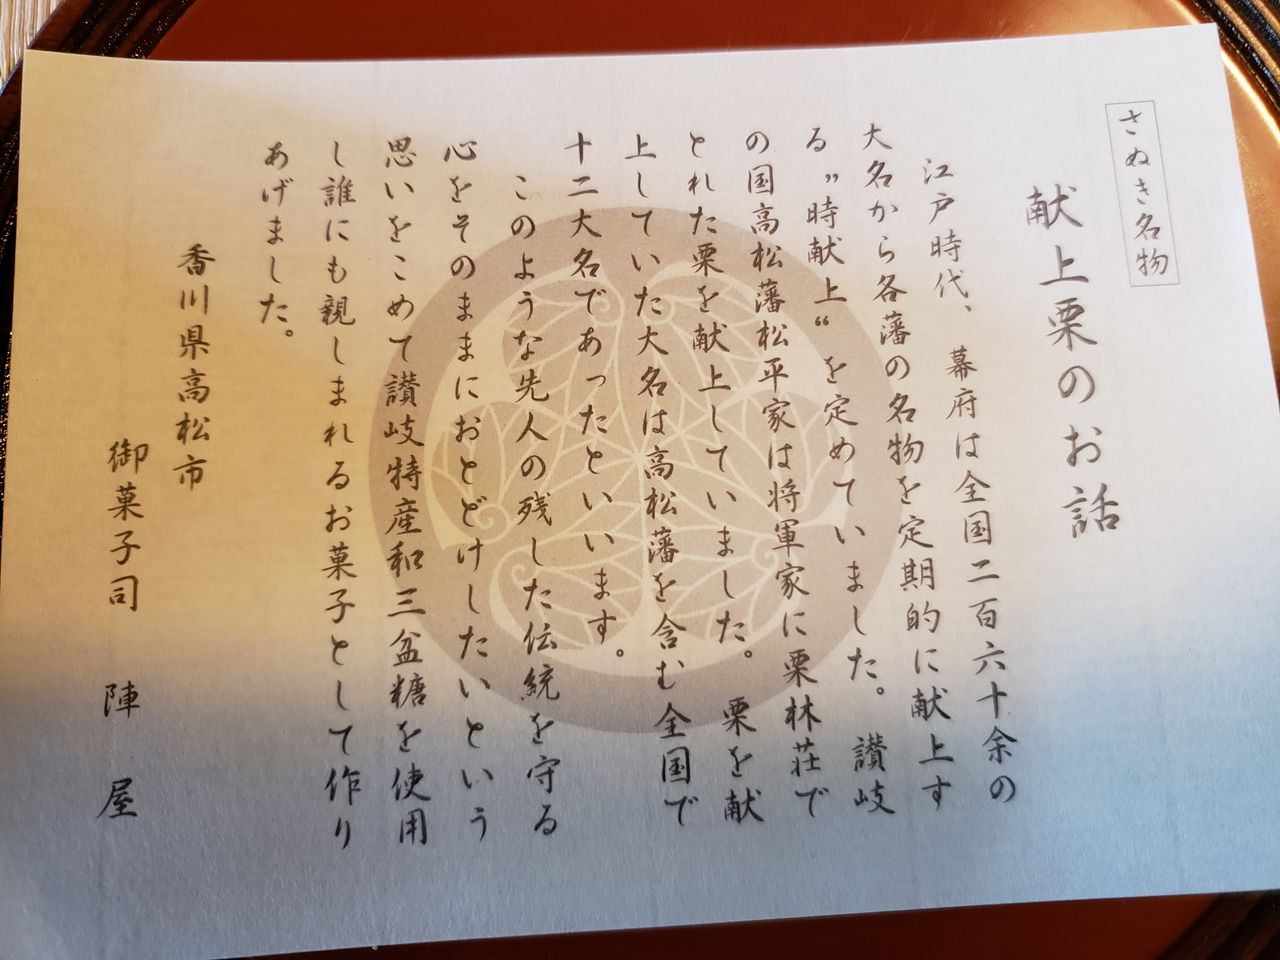 さぬき名物
献上栗のお話
江戸時代、幕府は全国二百六十余の
大名から各藩の名物を定期的に献上す
る〝時献上〟を定めていました。讃岐
の国高松藩松平家は将軍家に栗林荘で
とれた栗を献上していました。栗を献
上していた大名は高松藩を含む全国で
十二大名であったといいます。
このような先人の残した伝統を守る
心をそのままにおとどけしたいという
思いをこめて讃岐特産和三盆糖を使用
し誰にも親しまれるお菓子として作り
あげました。
香川県高松市
御菓子司 陣屋